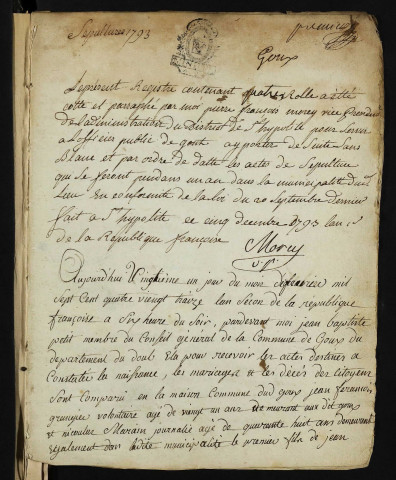 Sepultures 1793
premier
Goux
Le présent Registre contenant quatre Rolle a été
cotté et paraphé par moi pierre françois morey vice président
de l'administration du District de St hypolite pour servir
a l'officier public de goux a y porter de suite sans
Blanc et par ordre de datte les actes de Sepulture
que se feront pendans un an dans la municipalité dudit
Lieu En conformité de la loi du 20 septembre dernier
fait a St hypolite ce cinq decembre 1793 lan 2e
de la Republique françoise
Morey
v. p.
Aujourdhui vingtieme un jour du mois de fevrier mil
sept Cent quatre vingt traize lan second de la republique
françoise a six heure du Soir, pardevant moi jean baptiste
petit membre du Conseil general de la Commune de Goux du
departement du doub. Ela pour recevoir les actes destinés a
Constater les naissance, les mariages et les décès des citoyens
sont Comparu en la maison Commune dud goux jean fransois
grangier volontaire agé de vaingt un ans demeurant aux dit goux
et nicoulas Marain journalié agé de quarante huit ans demeurant
egalement dans ladite municipalité le premier fils de jean